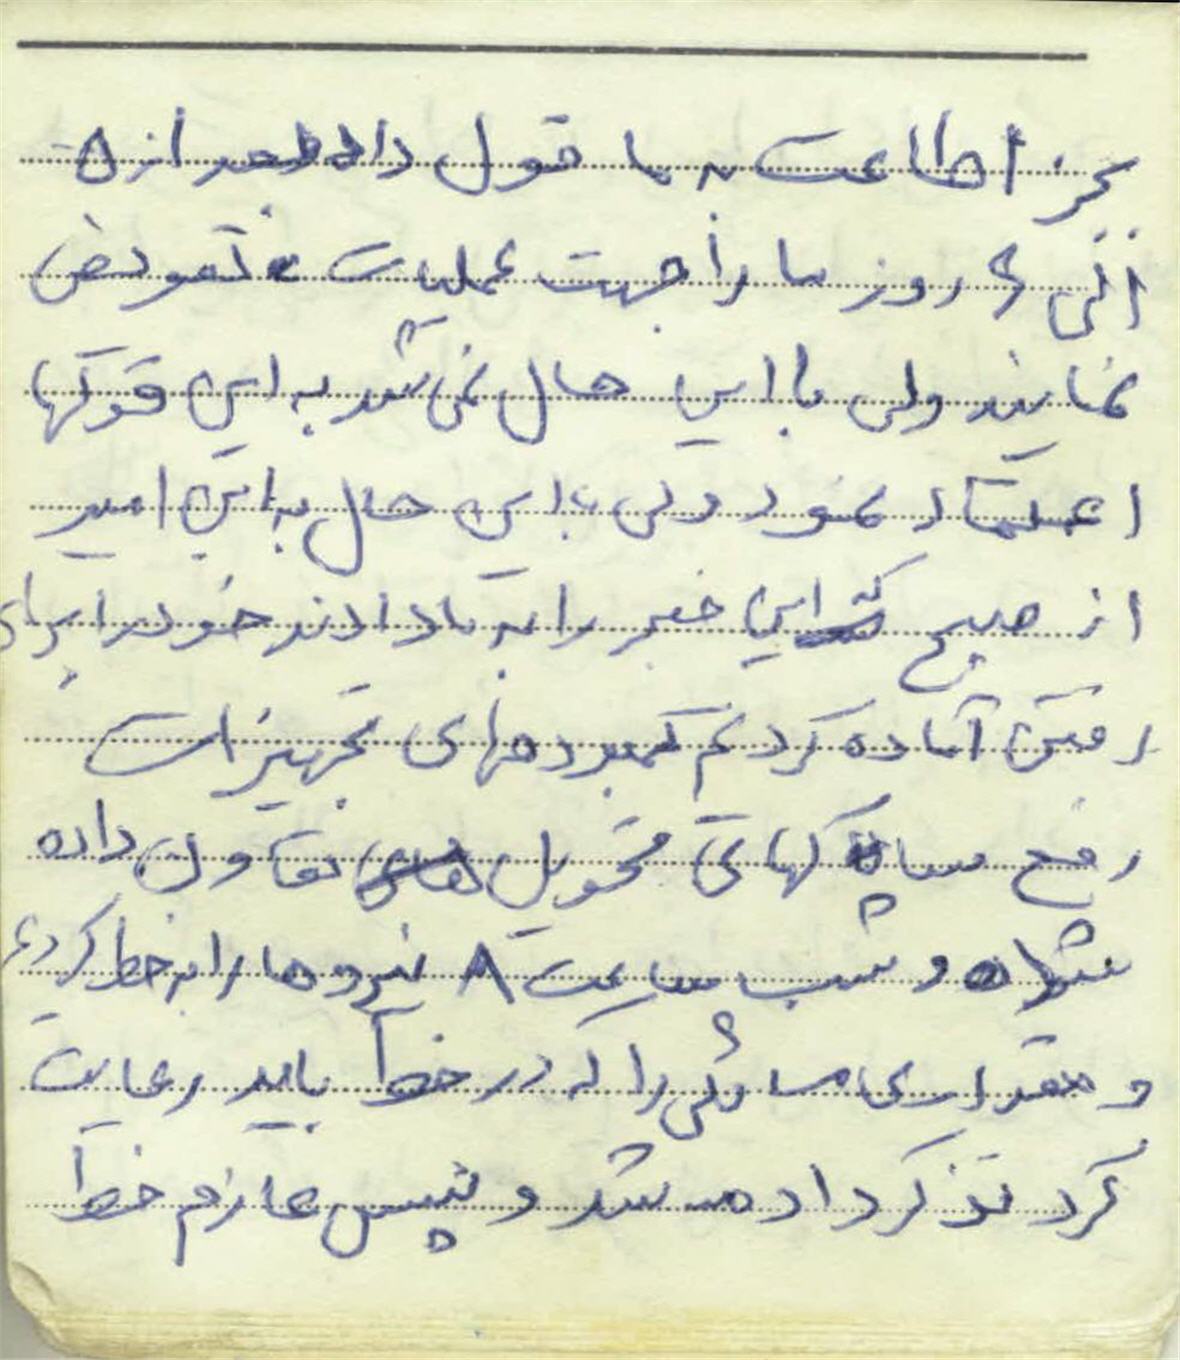 بجز اطاعت به ما قول داد بعد از ۵
الی ۶ روز ما را جهت عملیات تعویض
نمایند ولی با این حال نمی شد به این قولها
اعتماد نمود ولی با این حال به این امید
از صبح که این خبر را به ما دادند خود را برای
رفتن آماده کردیم کمبودهای تجهیزات
رفع ساکهای تحویل تعاون داده
شد و شب ساعت ۸ نیروها را به خط کردیم
و مقداری مسائلی را که در خط باید رعایت
کرد تذکر داده شد و سپس عازم خط